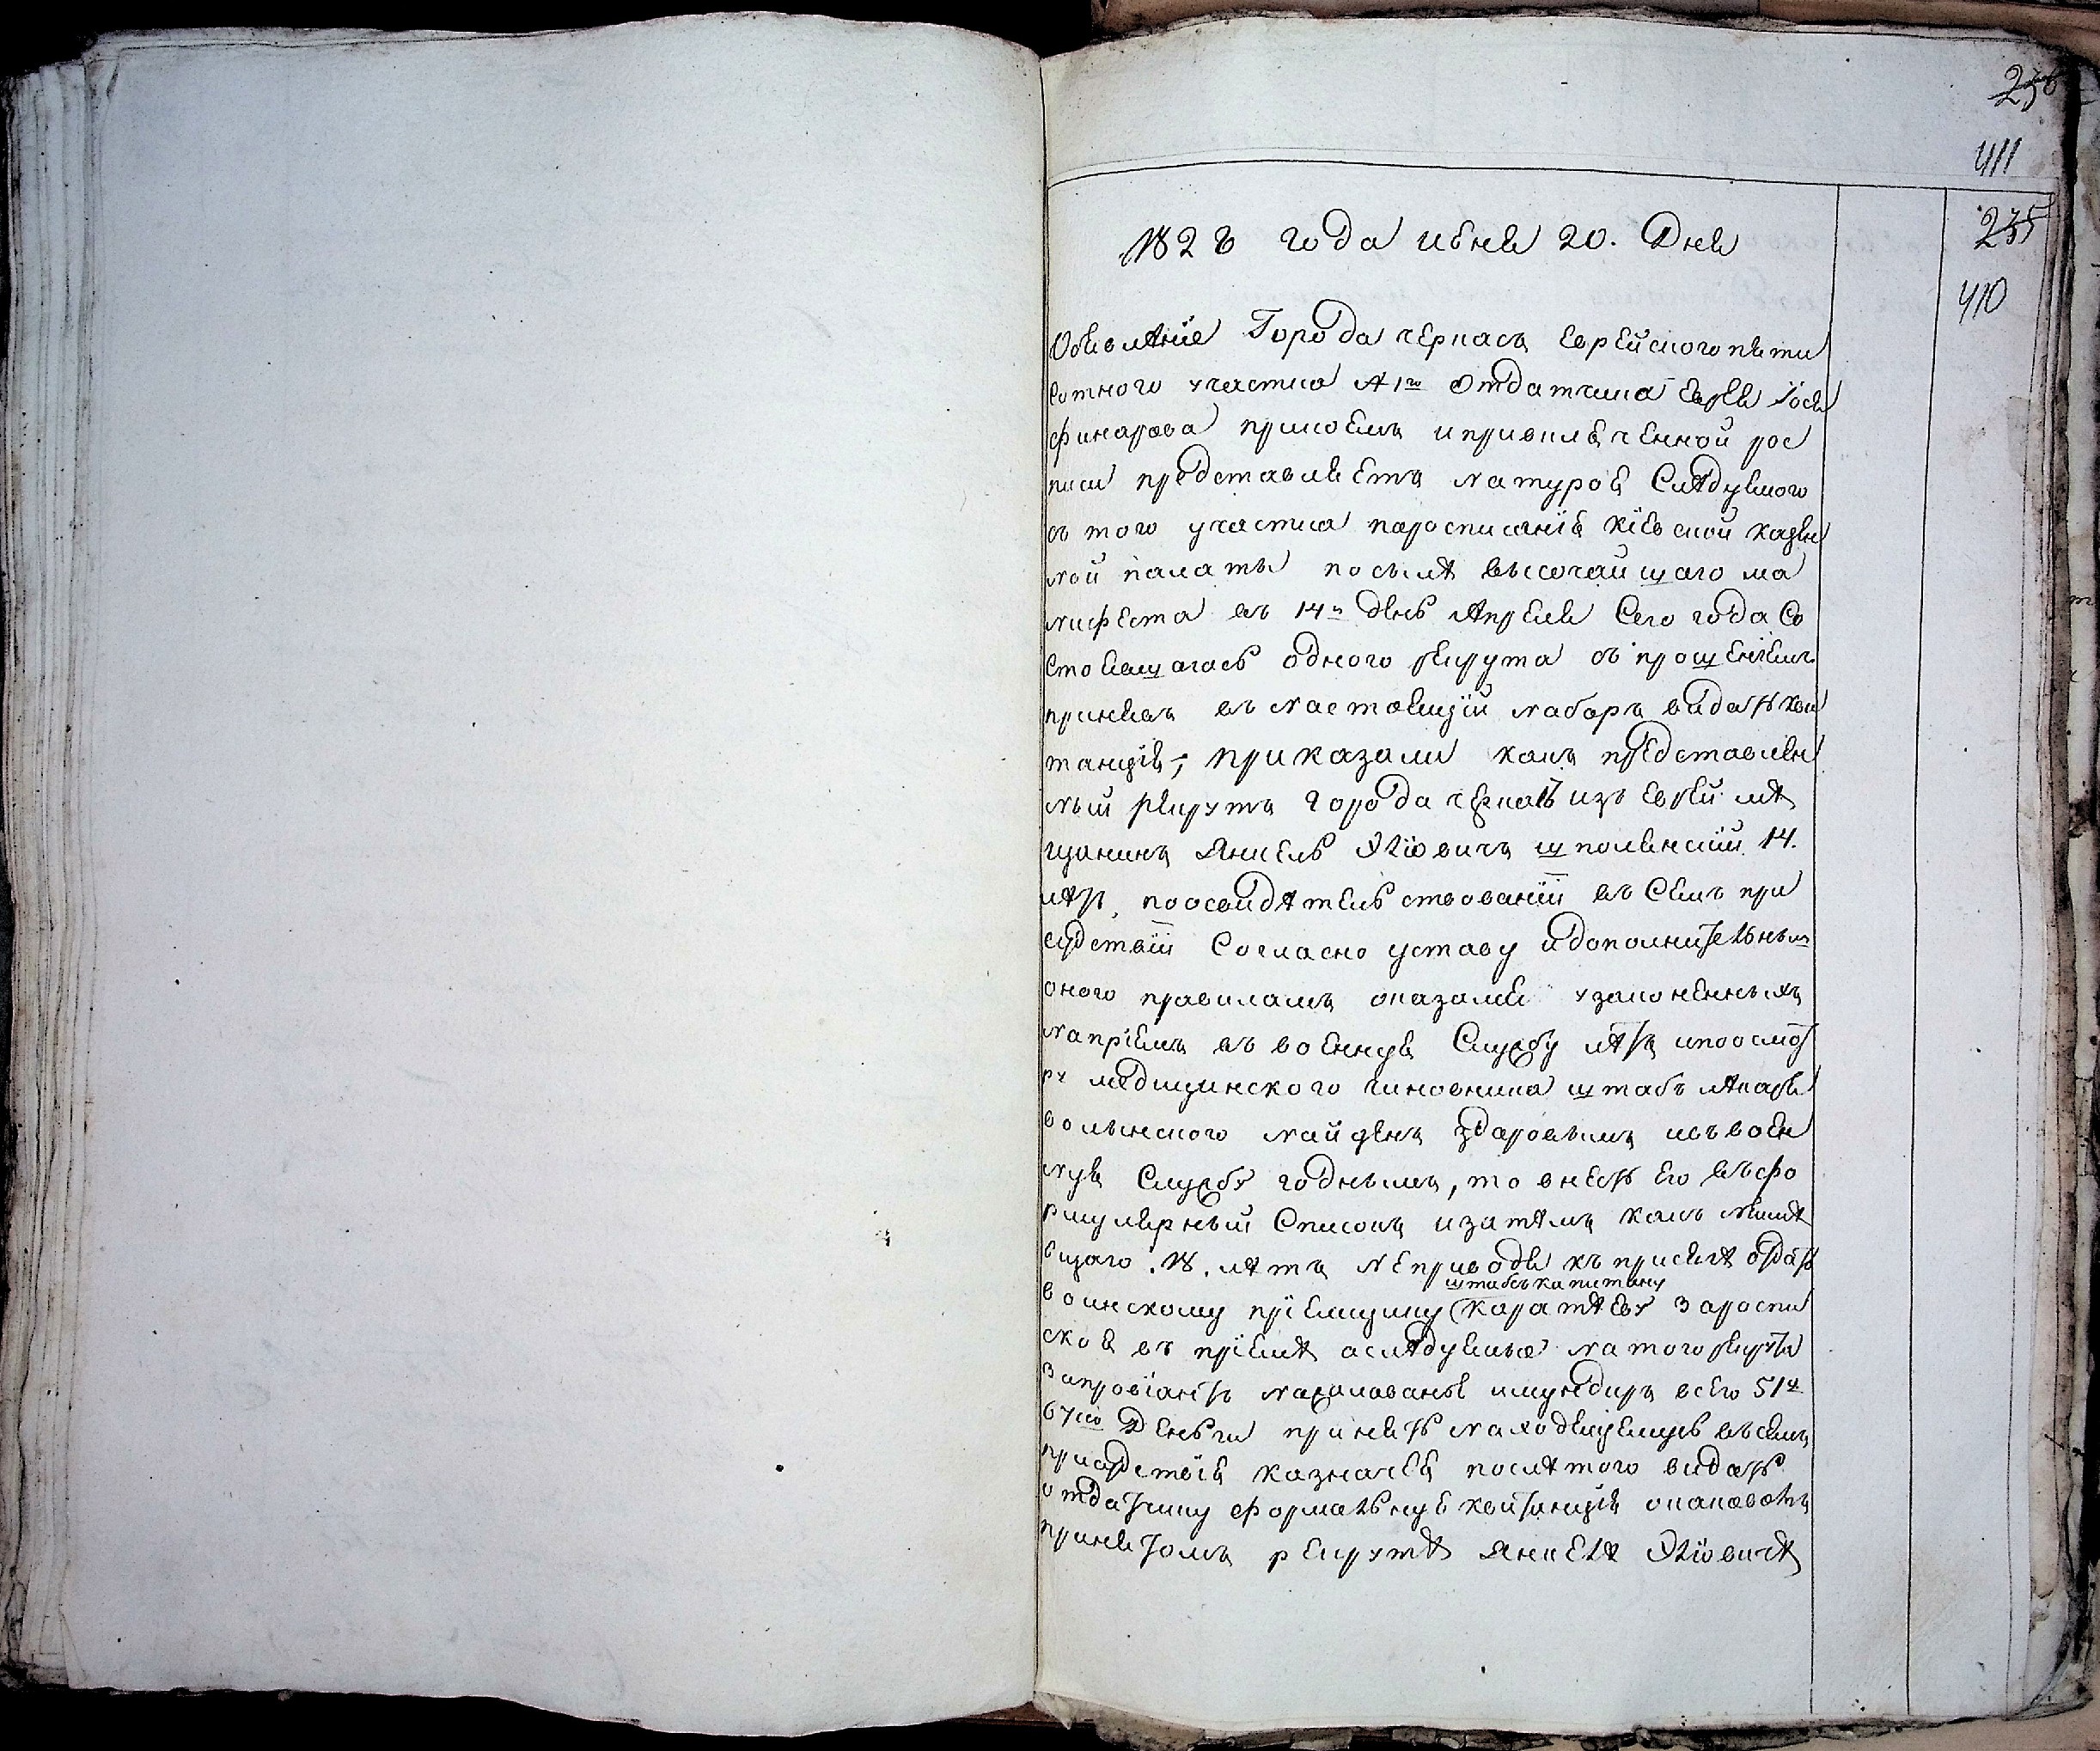 236
411
235
410
1828 года июня 20. Дня
Объявлѣніе Города черкасъ Еврейского пяти
сотного участка № 1го Отдатчика Еврея Іося
приюемъ и приключенной рос
писи представляетъ натурою Слѣдуемого
съ того участка поросписанію кіевской казен
ной палаты посилѣ высочайшаго ма
нифеста въ 14й день Апреля Сего года Со
стоявшагось одного рекрута съ прошеніемъ
принявъ въ настоящій наборъ видать кви
танцію, приказали какъ представлен
ный рекрутъ города черкасъ изъ Еврей мѣ
щанинъ Янкель Эліовичъ шполянскій 14.
лѣтъ, поосвидѣтельствованіи въ Семъ при
судствіи Согласно уставу идополнительнымъ
оного правиламъ оказался узаконенныхъ
напріемъ въ военную Службу лѣтъ ипоосмот
ру медицинского чиновника штабъ лѣкаря
волынского найденъ здаровымъ исъвоен
ную Службу годнымъ, то внесть Его въфо
рмулярный Списокъ изатѣмъ какъ неимѣ
ющаго .18. лѣтъ неприводя къ присягѣ отдать
штабсъ капитану
воинскому пріемщику каратѣеву зароспи
скою въ пріемѣ аслѣдуемые на того рекрута
Запровіантъ нажалованье имундиръ всего 51ч
67ко Деньги принять находящемусь въсемъ
присудствіи казначею послѣ того видать
отдатчику формальную квитанцію оиаковомъ
принятомъ рекрутѣ Янкелѣ Эліовичѣ